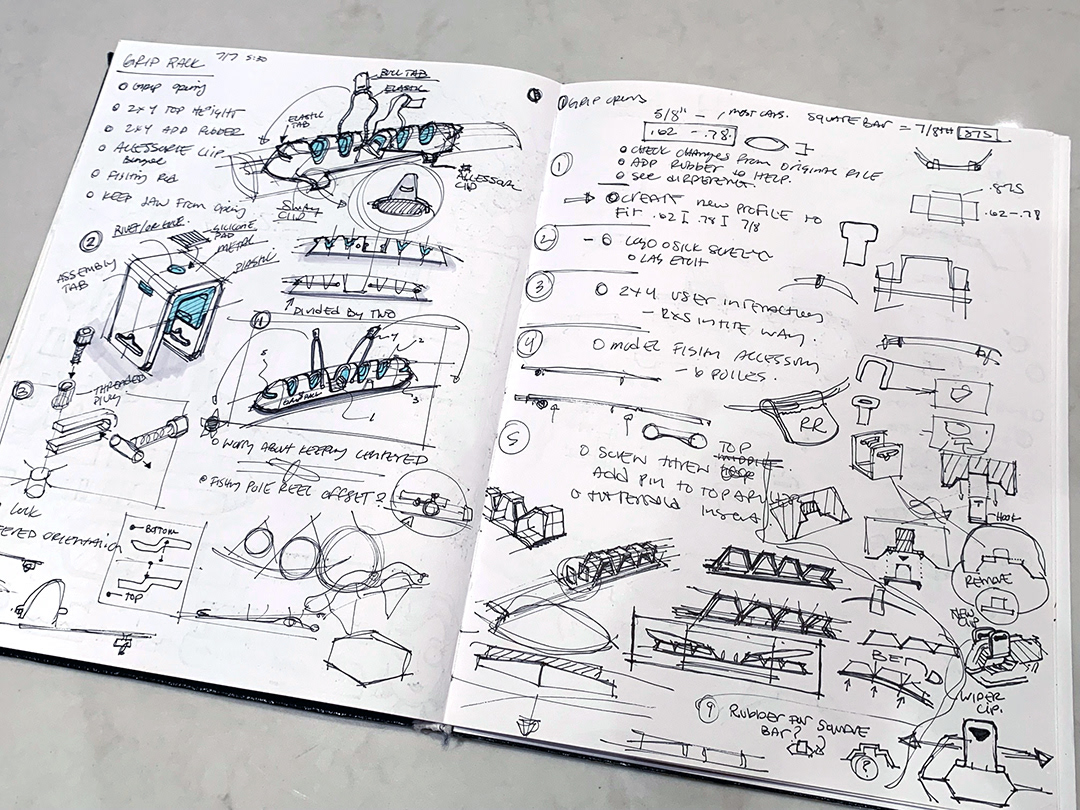 GRIP RACK 7/7 5:30
GRIP OPENING
2x4 TOP HEIGHT
2x4 ADD RUBBER
ACCESSORIE CLIP
FISHING ROD
KEEP JAW FROM OPENING
PULL TAB
ELASTIC
ELASTIC TAB
ACCESSORIE CLIP
CLIP
2
SILICONE PAD
METAL
PLASTIC
ASSEMBLY TAB
DIVIDED BY TWO
1
5
2
3
1
3
THREADED PLUG
WORRY ABOUT KEEPING CENTERED
FISHING POLE REEL OFFSET?
LOCK
ORIENTATION
BOTTOM
TOP
GRIP OPENING
5/8" - MOST CARS. SQUARE BAR = 7/8TH .875
.62 - .78
1
CHECK CHANGES FROM ORIGINAL
ADD RUBBER TO HELP.
SEE DIFFERENCE.
CREATE NEW PROFILE TO
FIT .62 I .78 I 7/8
.875
.62-.78
2
LOGO SILK SCREEN
LAS ETCH
3
2x4 USER INTERACTION
WAY.
4
MODEL FISHING ACCESSORY
- 6 POLLES.
RR
5
SCREW THREW TOP
ADD PIN TO TOP
INSERT
HOOK
REMOVE
NEW CLIP
BED
WIPER CLIP.
9 RUBBER FOR SQUARE
BAR?
?